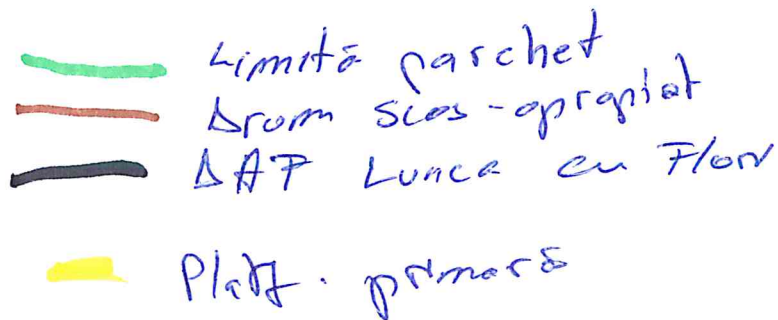 Limită parchet
Drum scos-apropiat
DAF Lunca cu Flori
Platf. primară